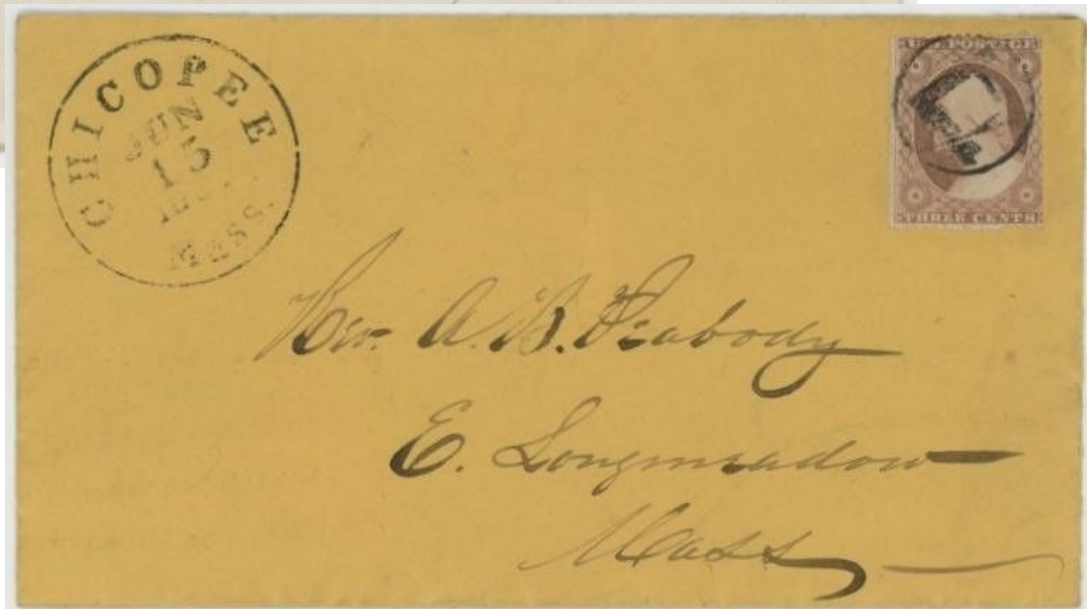 CHICOPEE
JUN
15
MASS.
U.S. POSTAGE
THREE CENTS
Rev. A. B. Peabody
E. Longmeadow
Mass